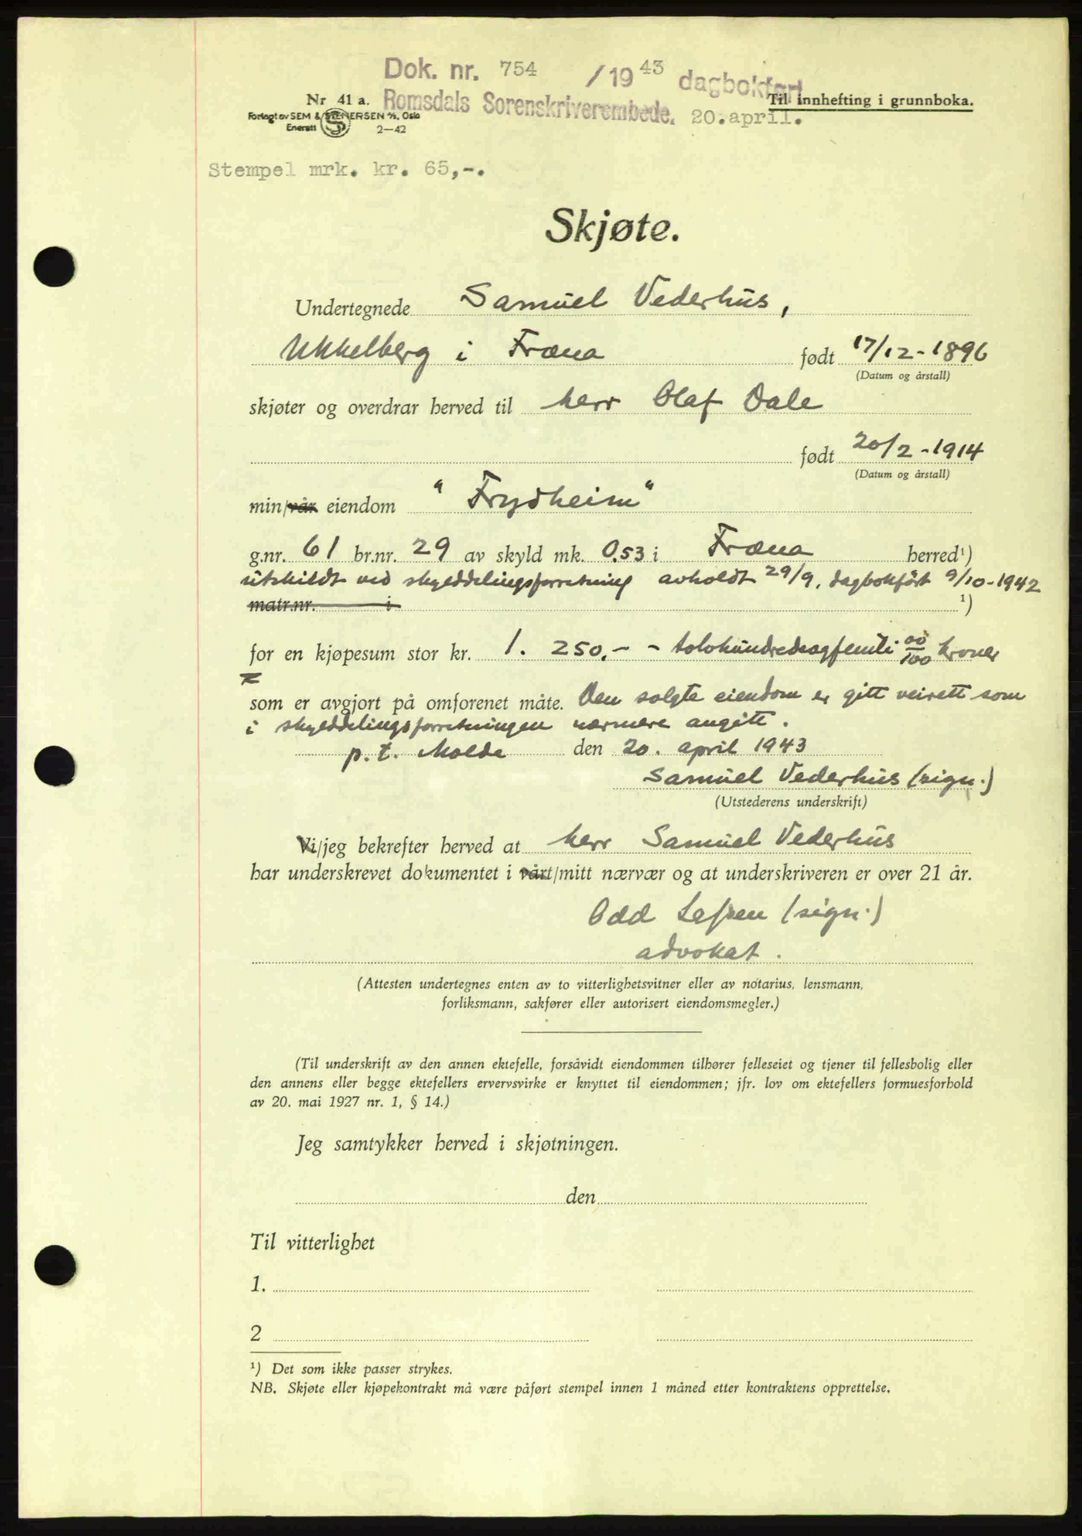 Dok. nr. 754 /1943 dagbokført
Nr 41 a. Romsdals Sorenskriverembede. 20.april. Til innhefting i grunnboka.
Forlagt av SEM & STENERSEN A/S, Oslo
Enerett 2—42
Stempel mrk. kr. 65,-.
Skjøte.
Undertegnede Samuel Vederhus,
Ukkelberg i Fræna født 17/12-1896
(Datum og årstall)
skjøter og overdrar herved til herr Olaf Dale
født 20/2-1914
(Datum og årstall)
min/vår eiendom "Frydheim"
g.nr. 61 br.nr. 29 av skyld mk. 0.53 i Fræna herred¹)
utskildt ved skylddelingsforretning avholdt 29/9, dagbokført 9/10-1942
matr.nr. i ¹)
for en kjøpesum stor kr. 1.250.- - tolvhundredeogfemti 00/100 kroner
som er avgjort på omforenet måte. Den solgte eiendom er gitt veirett som
i skylddelingsforretningen nærmere angitt.
p.t. Molde den 20. april 1943
Samuel Vederhus (sign.)
(Utstederens underskrift)
Vi/jeg bekrefter herved at herr Samuel Vederhus
har underskrevet dokumentet i vårt/mitt nærvær og at underskriveren er over 21 år.
Odd (sign.)
advokat.
(Attesten undertegnes enten av to vitterlighetsvitner eller av notarius, lensmann,
forliksmann, sakfører eller autorisert eiendomsmegler.)
(Til underskrift av den annen ektefelle, forsåvidt eiendommen tilhører felleseiet og tjener til fellesbolig eller
den annens eller begge ektefellers ervervsvirke er knyttet til eiendommen; jfr. lov om ektefellers formuesforhold
av 20. mai 1927 nr. 1, § 14.)
Jeg samtykker herved i skjøtningen.
den
Til vitterlighet
1.
2
¹) Det som ikke passer strykes.
NB. Skjøte eller kjøpekontrakt må være påført stempel innen 1 måned etter kontraktens opprettelse.